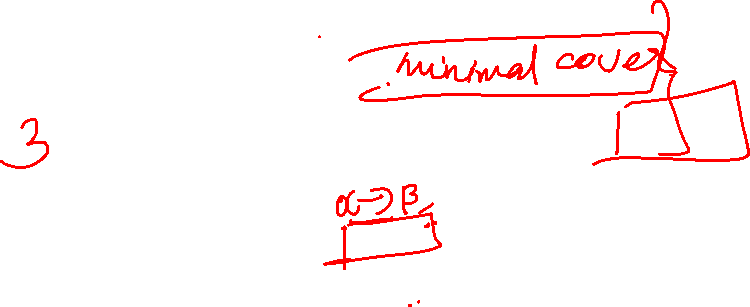 minimal cover
3
α→β